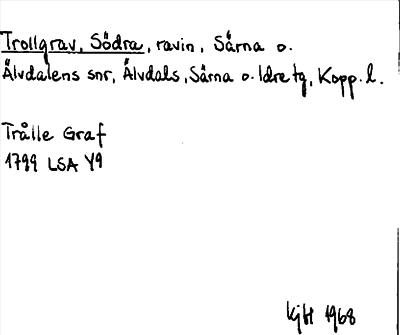 Trollgrav, Södra, ravin, Särna o.
Älvdalens snr, Älvdals, Särna o. Idre tg, Kopp. l.
Trålle Graf
1799 LSA Y9
KjH 1968